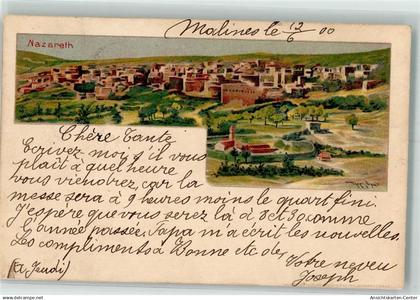 Nazareth
Malines le 12/6 00
Chère Tante
Ecrivez moi s'il vous
plait à quel heure
vous viendrez, car la
messe sera à 9 heures moins le quart fini.
J'espère que vous serez là à 8 et 30 comme
l'année passée. Papa m'a écrit les nouvelles.
Les compliments à Bonne etc de
Votre neveu
(A Jeudi) Joseph
www.ansichtskarten-center.de
Ansichtskarten-Center